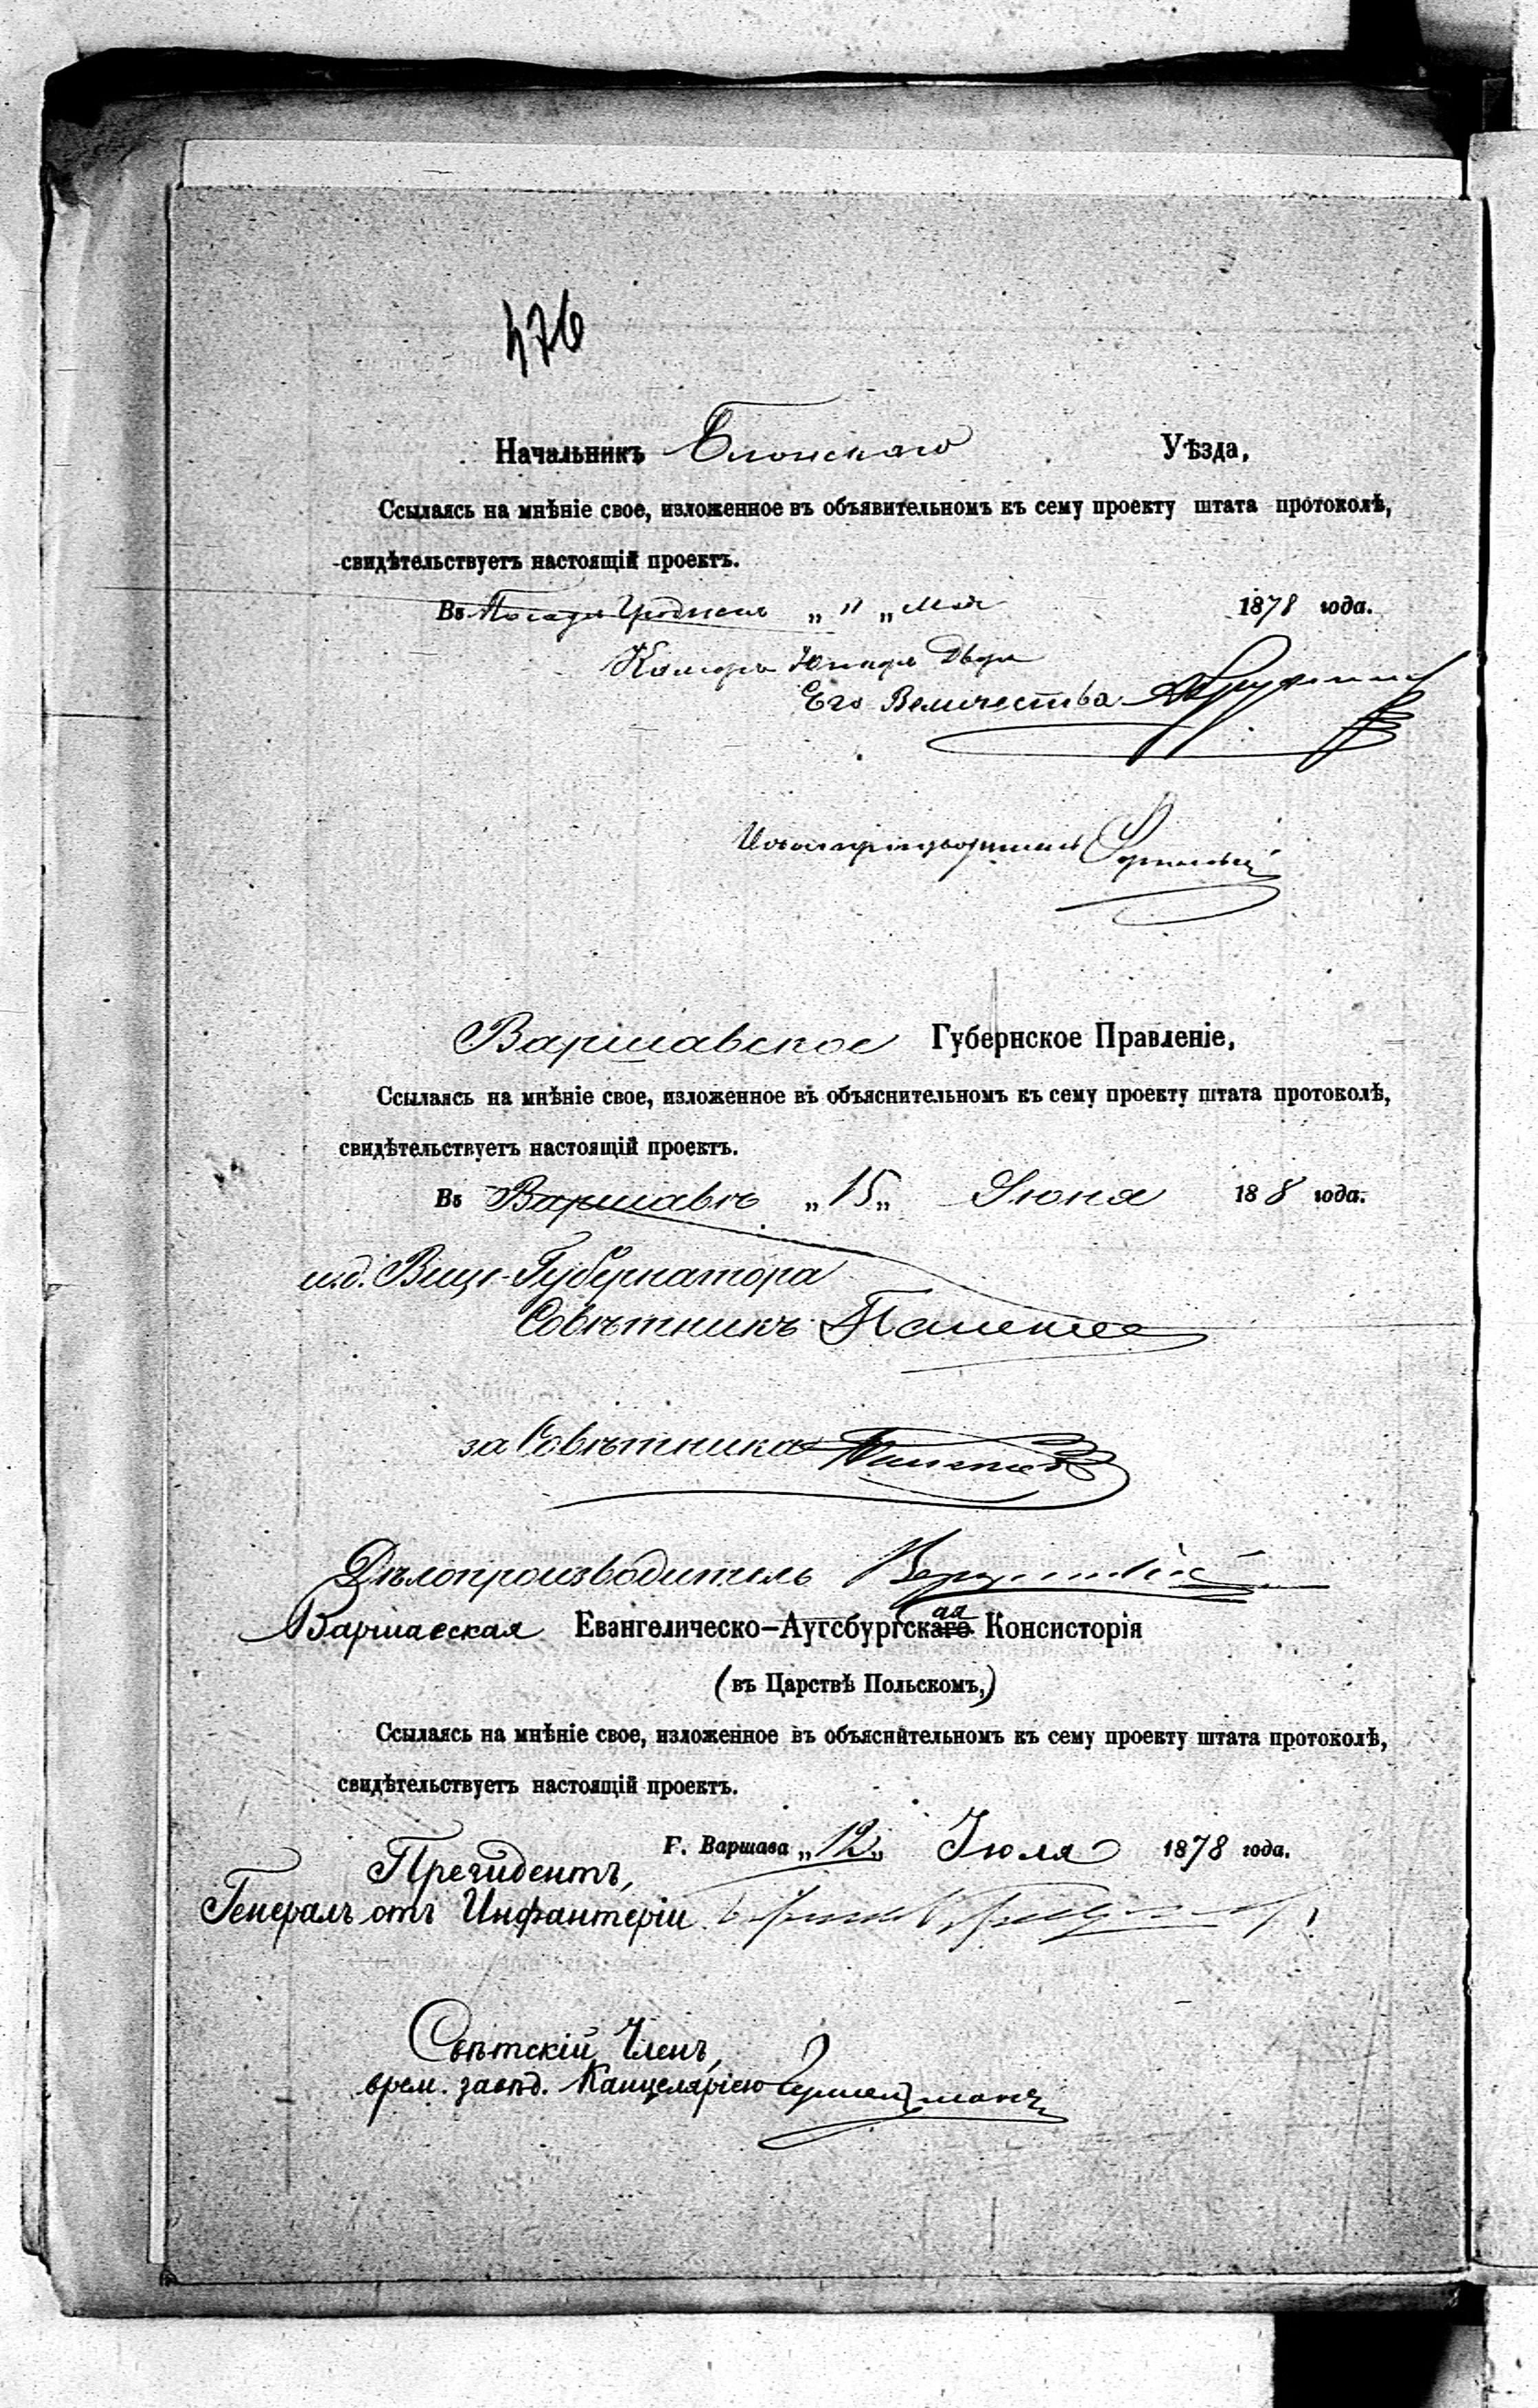 476
Начальникъ Блонскаго Уѣзда,
Ссылаясь на мнѣніе свое, изложенное въ объявительномъ къ сему проекту штата протоколѣ,
свидѣтельствуетъ настоящій проектъ.
Въ Посадѣ „ 11 „ Мая 1878 года.
Камеръ Юнкеръ Двора
Его Величества
Варшавское Губернское Правленіе,
Ссылаясь на мнѣніе свое, изложенное въ объяснительномъ къ сему проекту штата протоколѣ,
свидѣтельствуетъ настоящій проектъ.
Въ Варшавѣ „ 15 „ Іюня 18 8 года.
и.д. Вице-Губернатора
Совѣтникъ
за Совѣтника
Дѣлопроизводитель
Варшавская Евангелическо-Аугсбургскаго ая Консисторія
(въ Царствѣ Польскомъ,)
Ссылаясь на мнѣніе свое, изложенное въ объяснительномъ къ сему проекту штата протоколѣ,
свидѣтельствуетъ настоящій проектъ.
Г. Варшава „ 12 „ Іюля 1878 года.
Президентъ,
Генералъ отъ Инфантеріи
Свѣтскій Членъ,
врем. завѣд. Канцеляріею